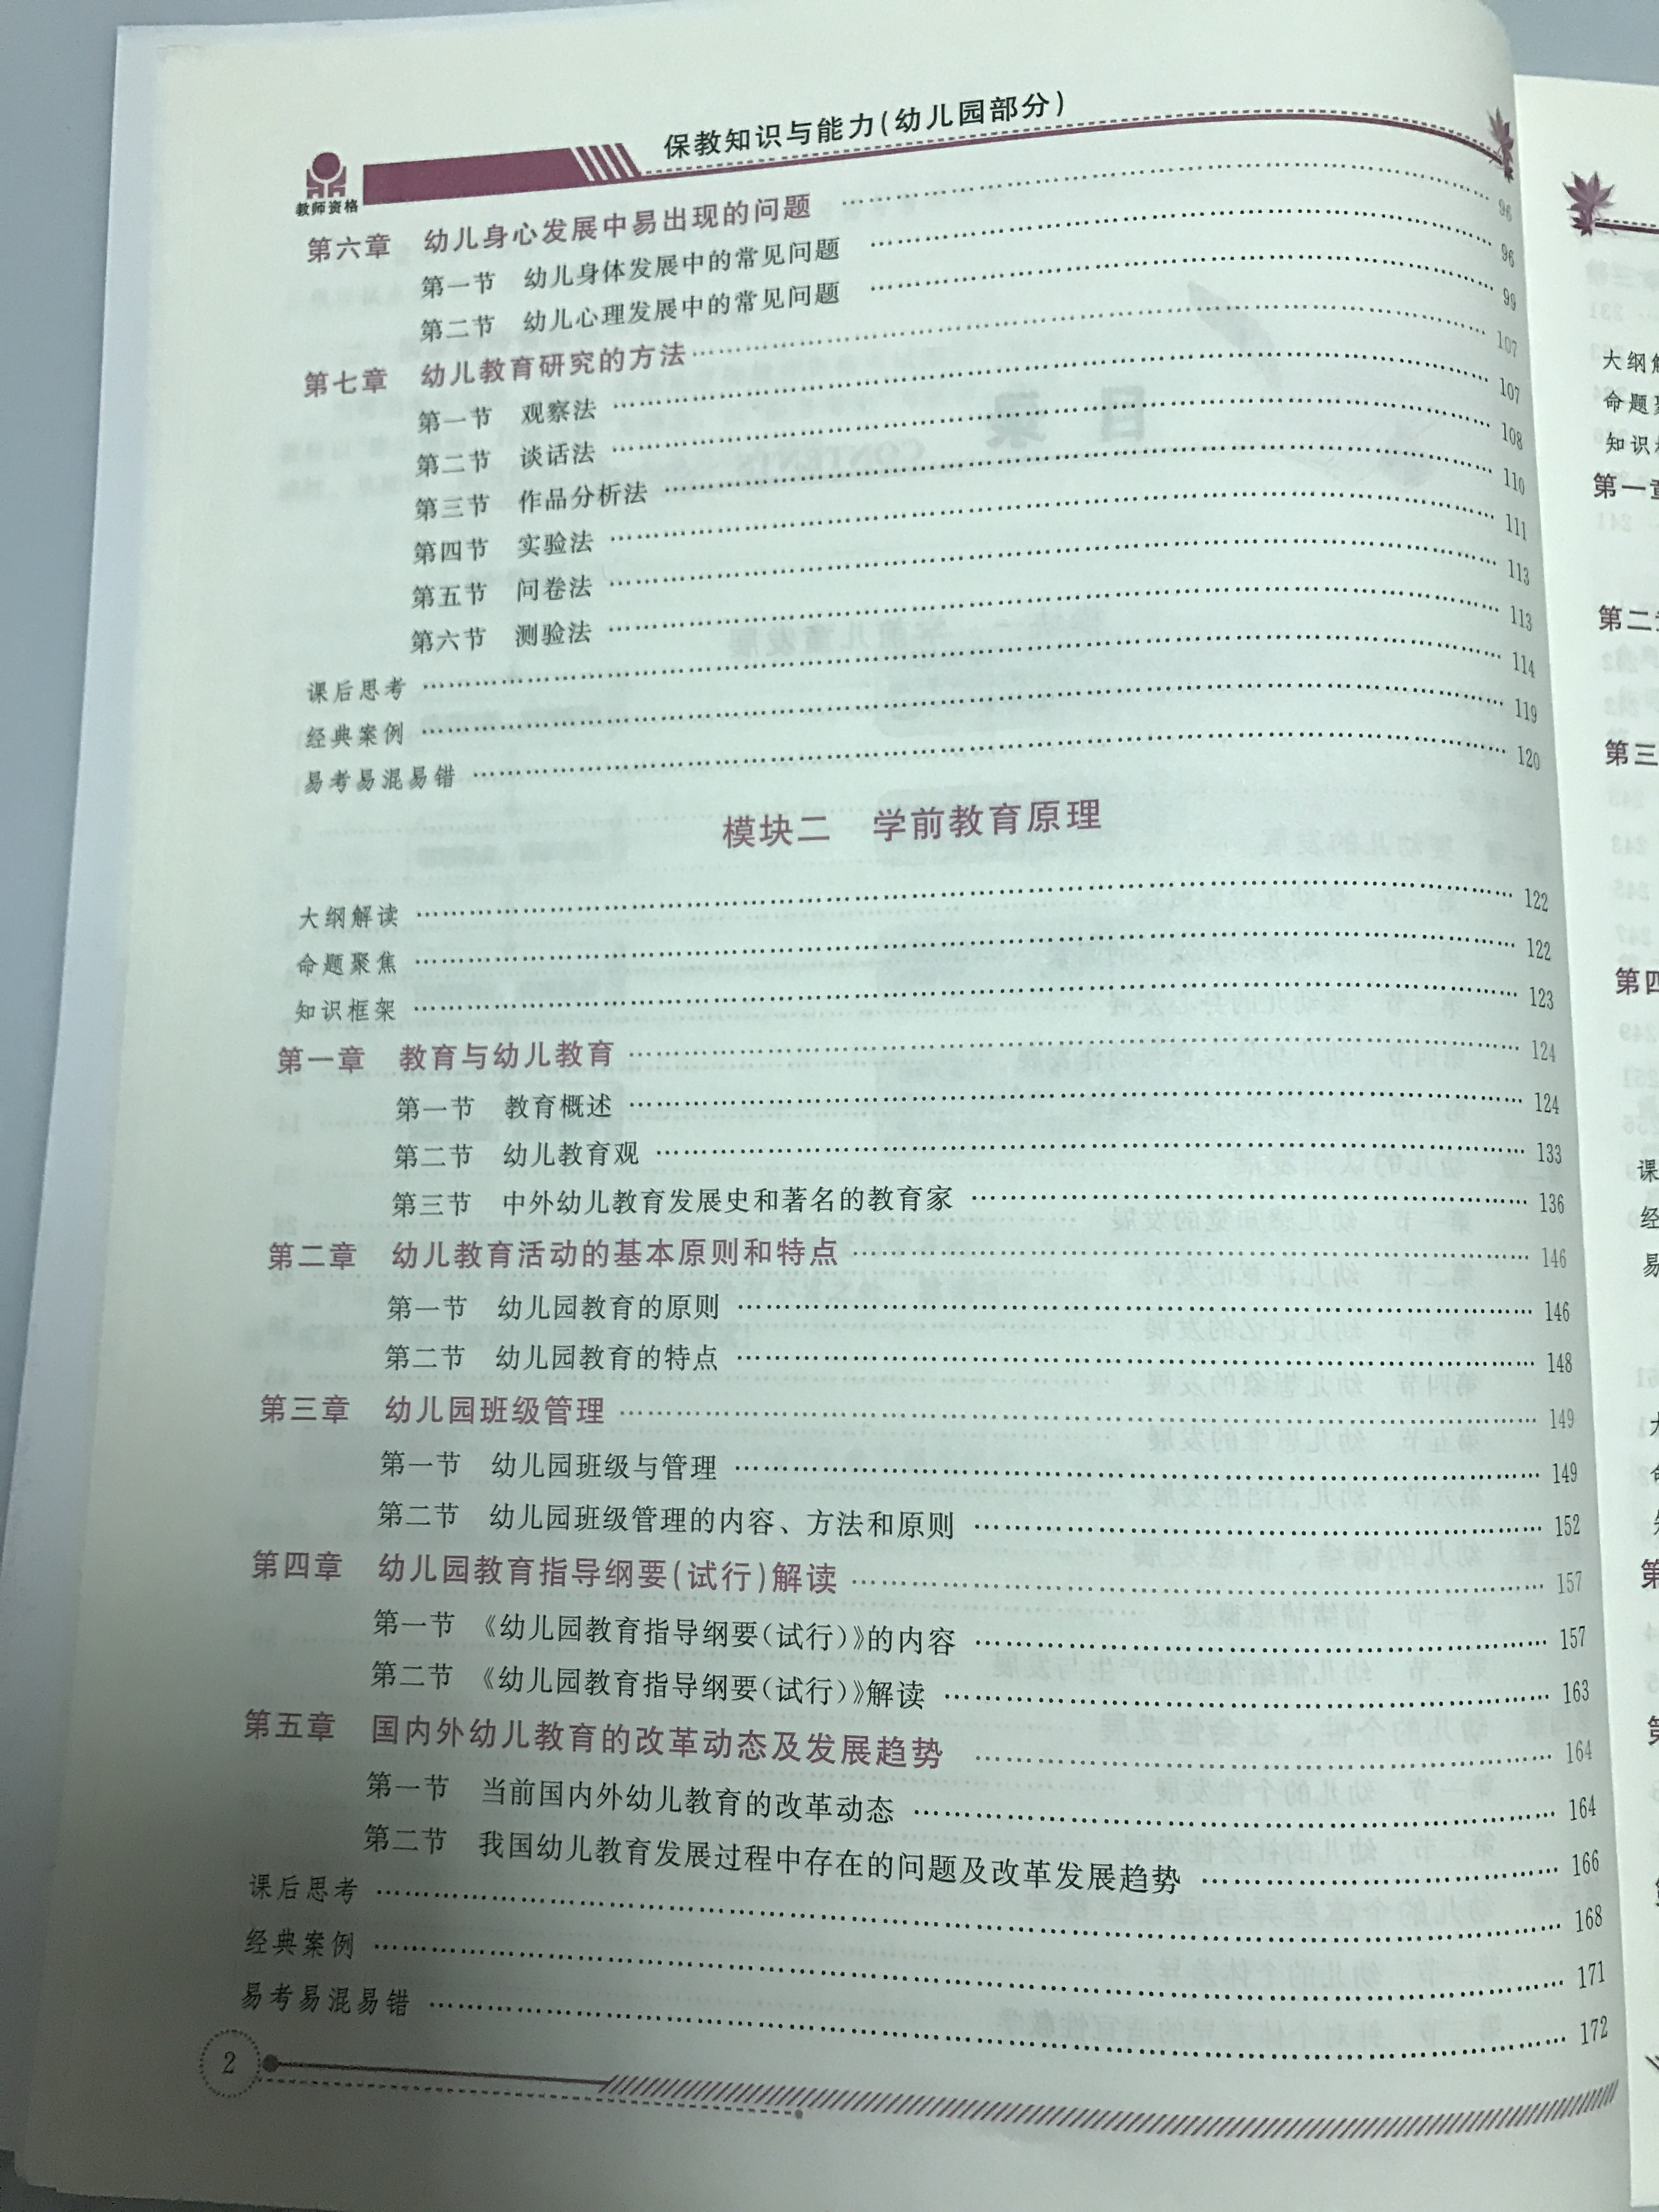 保教知识与能力(幼儿园部分)
教师资格
第六章 幼儿身心发展中易出现的问题 …… 96
第一节 幼儿身体发展中的常见问题 …… 96
第二节 幼儿心理发展中的常见问题 …… 99
第七章 幼儿教育研究的方法 …… 107
第一节 观察法 …… 107
第二节 谈话法 …… 108
第三节 作品分析法 …… 110
第四节 实验法 …… 111
第五节 问卷法 …… 113
第六节 测验法 …… 113
课后思考 …… 114
经典案例 …… 119
易考易混易错 …… 120
模块二 学前教育原理
大纲解读 …… 122
命题聚焦 …… 122
知识框架 …… 123
第一章 教育与幼儿教育 …… 124
第一节 教育概述 …… 124
第二节 幼儿教育观 …… 133
第三节 中外幼儿教育发展史和著名的教育家 …… 136
第二章 幼儿教育活动的基本原则和特点 …… 146
第一节 幼儿园教育的原则 …… 146
第二节 幼儿园教育的特点 …… 148
第三章 幼儿园班级管理 …… 149
第一节 幼儿园班级与管理 …… 149
第二节 幼儿园班级管理的内容、方法和原则 …… 152
第四章 幼儿园教育指导纲要(试行)解读 …… 157
第一节 《幼儿园教育指导纲要(试行)》的内容 …… 157
第二节 《幼儿园教育指导纲要(试行)》解读 …… 163
第五章 国内外幼儿教育的改革动态及发展趋势 …… 164
第一节 当前国内外幼儿教育的改革动态 …… 164
第二节 我国幼儿教育发展过程中存在的问题及改革发展趋势 …… 166
课后思考 …… 168
经典案例 …… 171
易考易混易错 …… 172
2
大纲
命题
知识
第一
第二
第三
第四
课
经
易